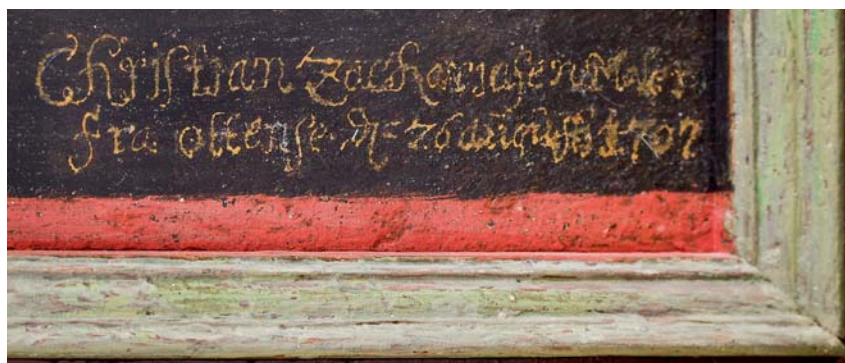 Christian Zachariasen Maler
fra ottense. 26 augusti 1707